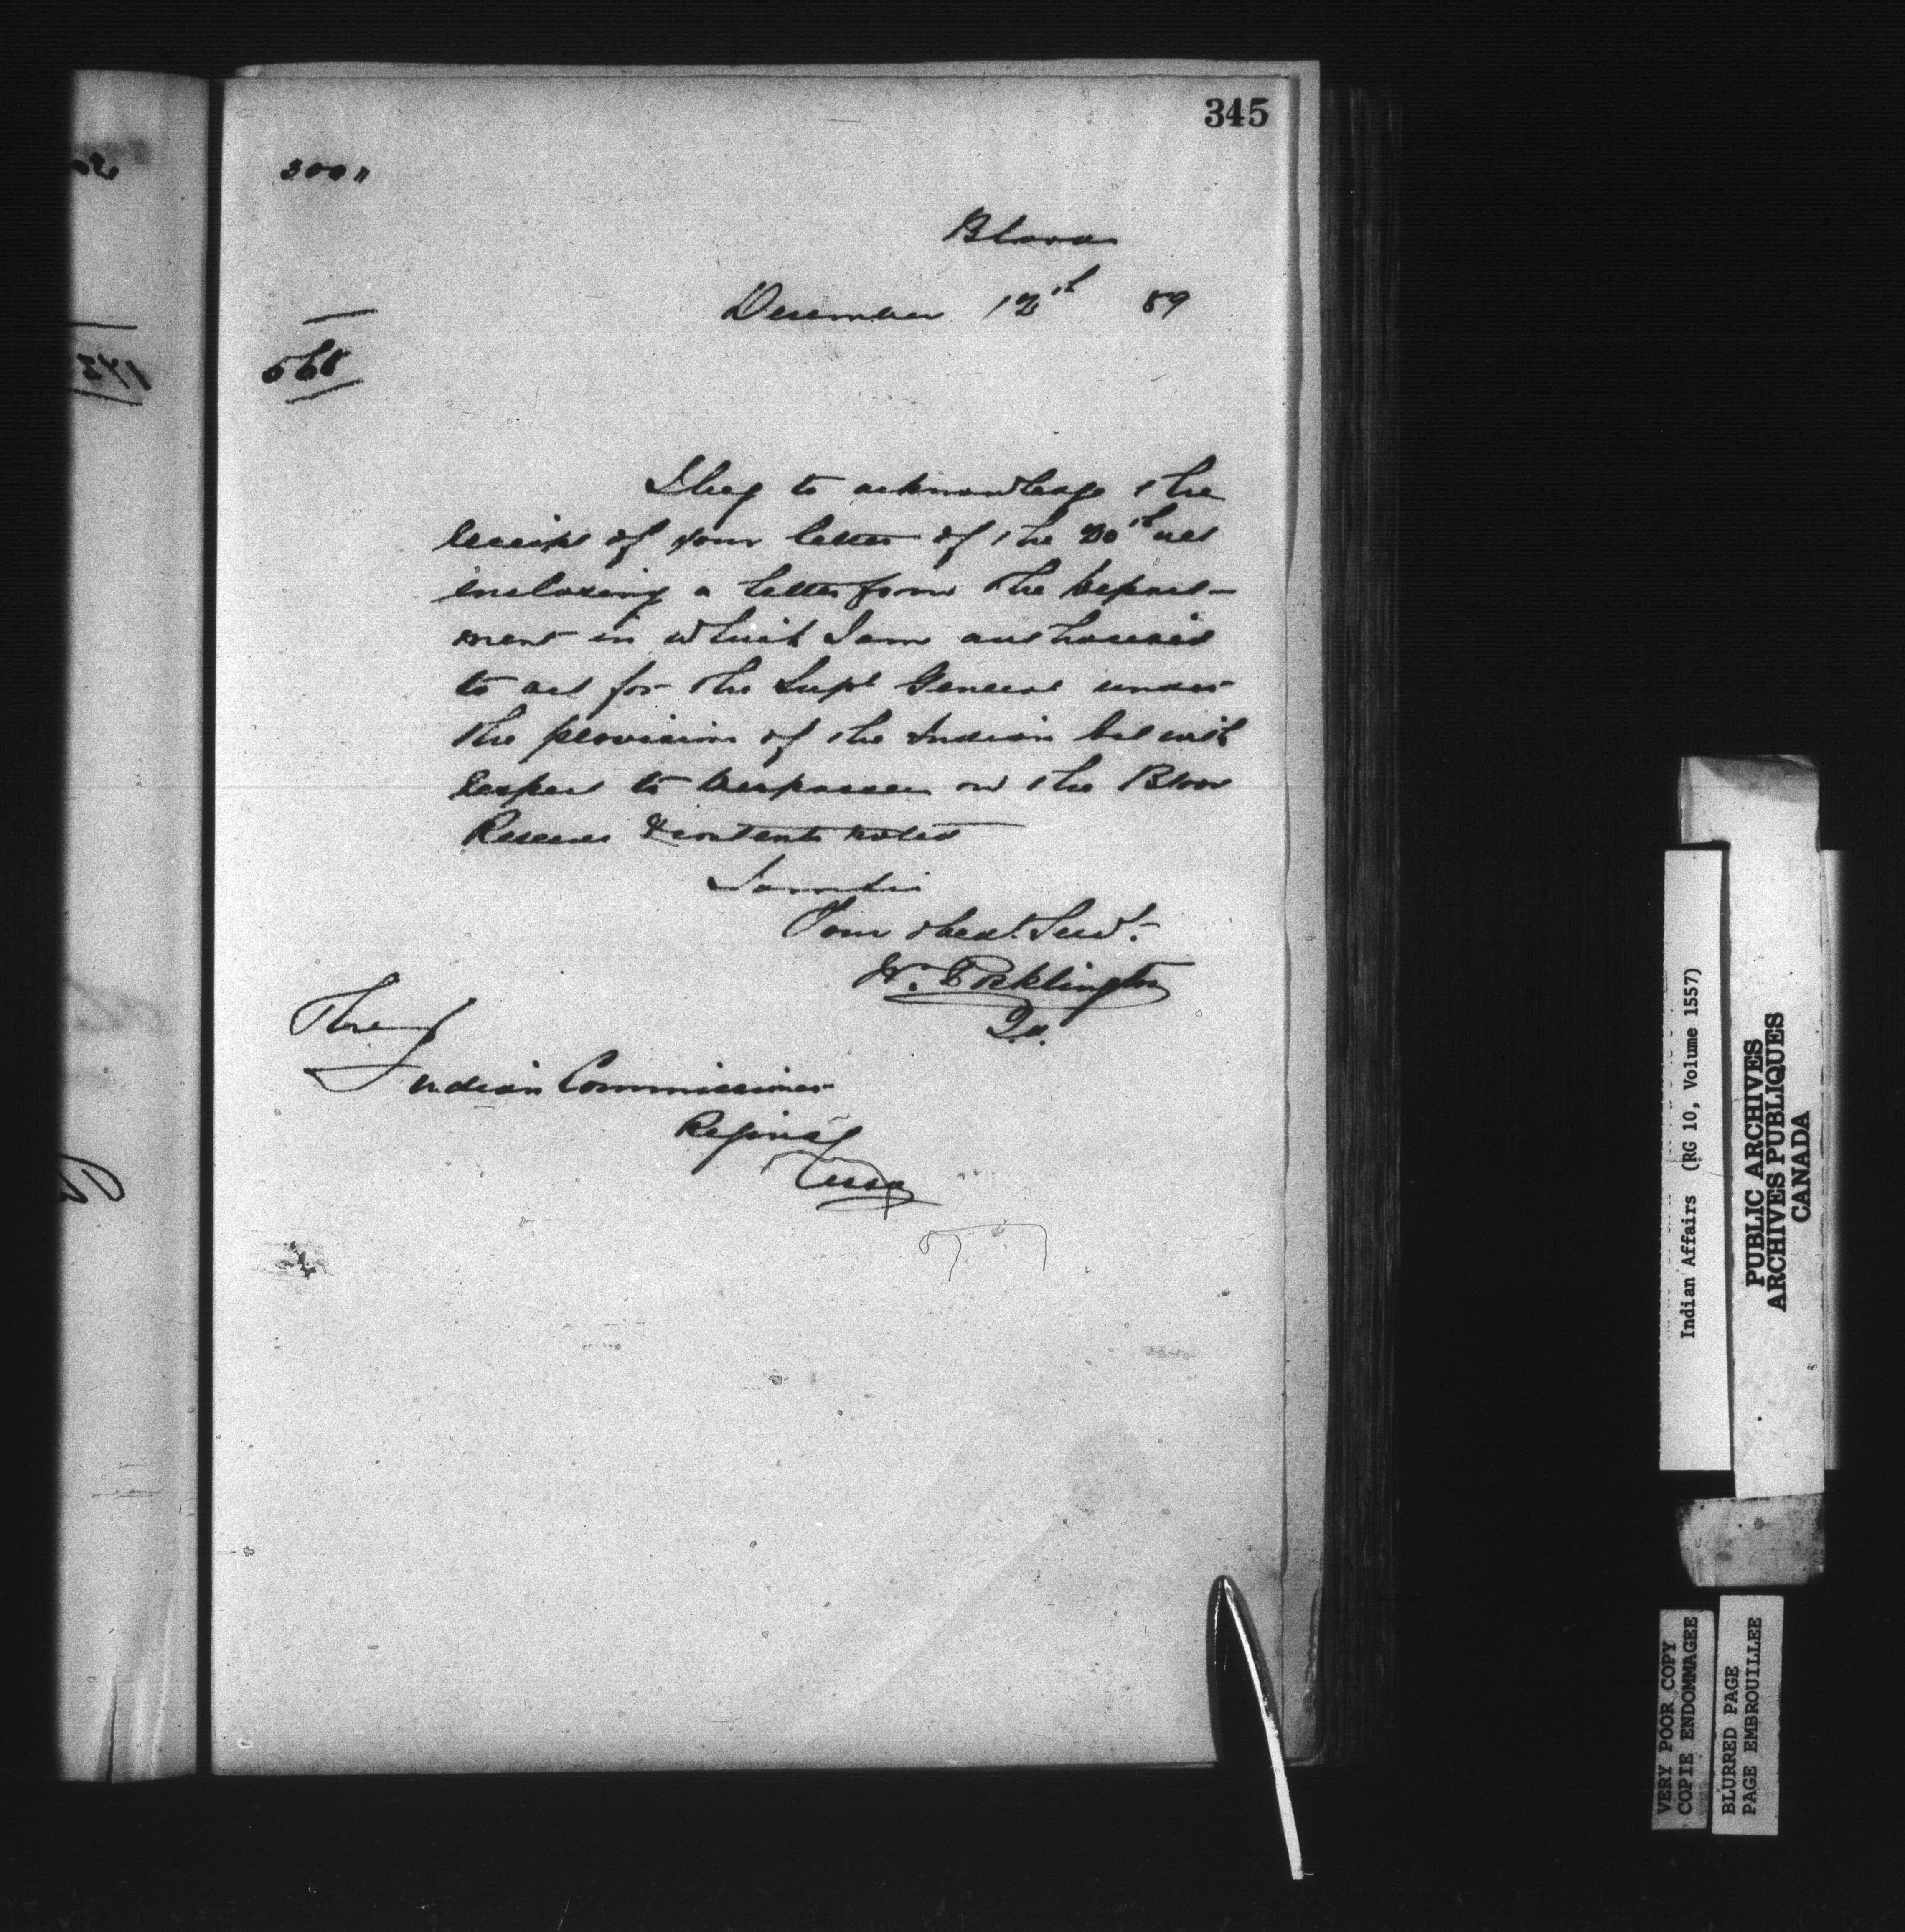 345
Blood
December 12th 89
568
I beg to acknowledge the
receipt of your letter of the 20th ult
inclosing a letter from the Depart-
ment in which I am authorised
to act for the Supt General under
the provision of the Indian Act with
respect to trespassers on the Blood
Reserve & contents noted
I am Sir
Your obedt. Servt.
W. Pocklington
The
Indian Commissioner
Regina
Assa
Indian Affairs (RG 10, Volume 1557)
PUBLIC ARCHIVES
ARCHIVES PUBLIQUES
CANADA
VERY POOR COPY
COPIE ENDOMMAGEE
BLURRED PAGE
PAGE EMBROUILLEE